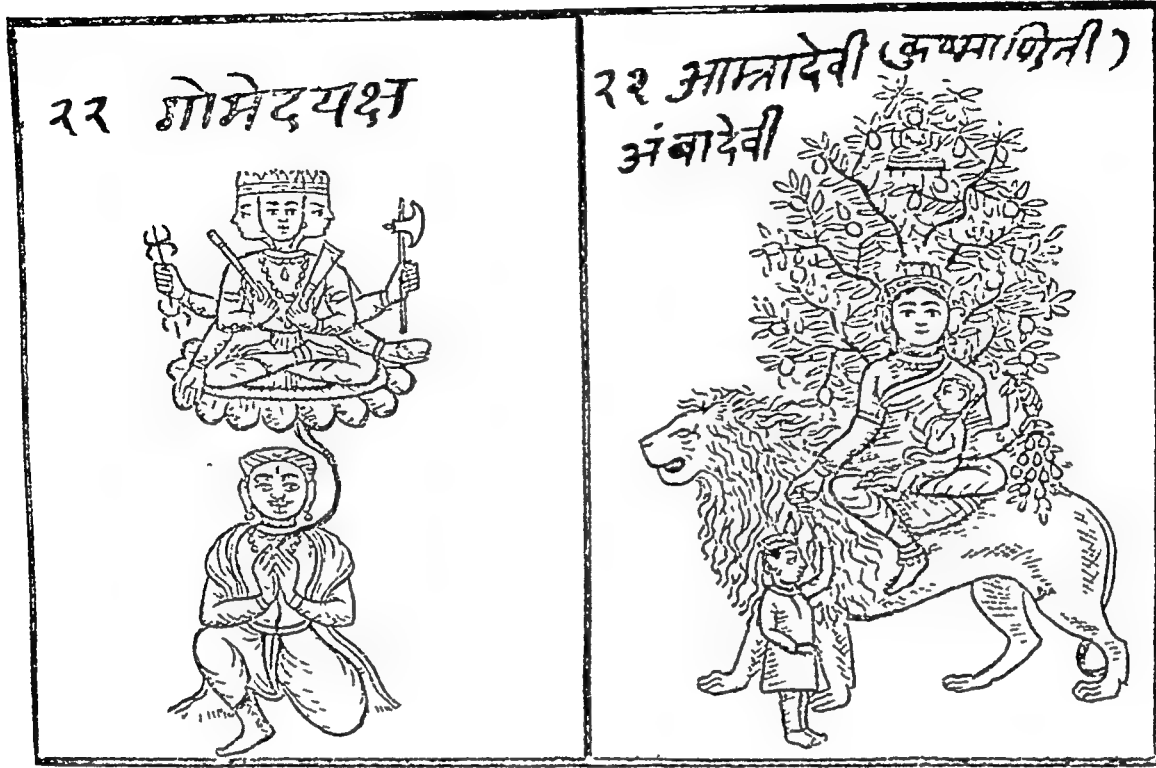 २२ गोमेदयक्ष
२२ आम्रादेवी (कुष्माण्डिनी)
अंबादेवी